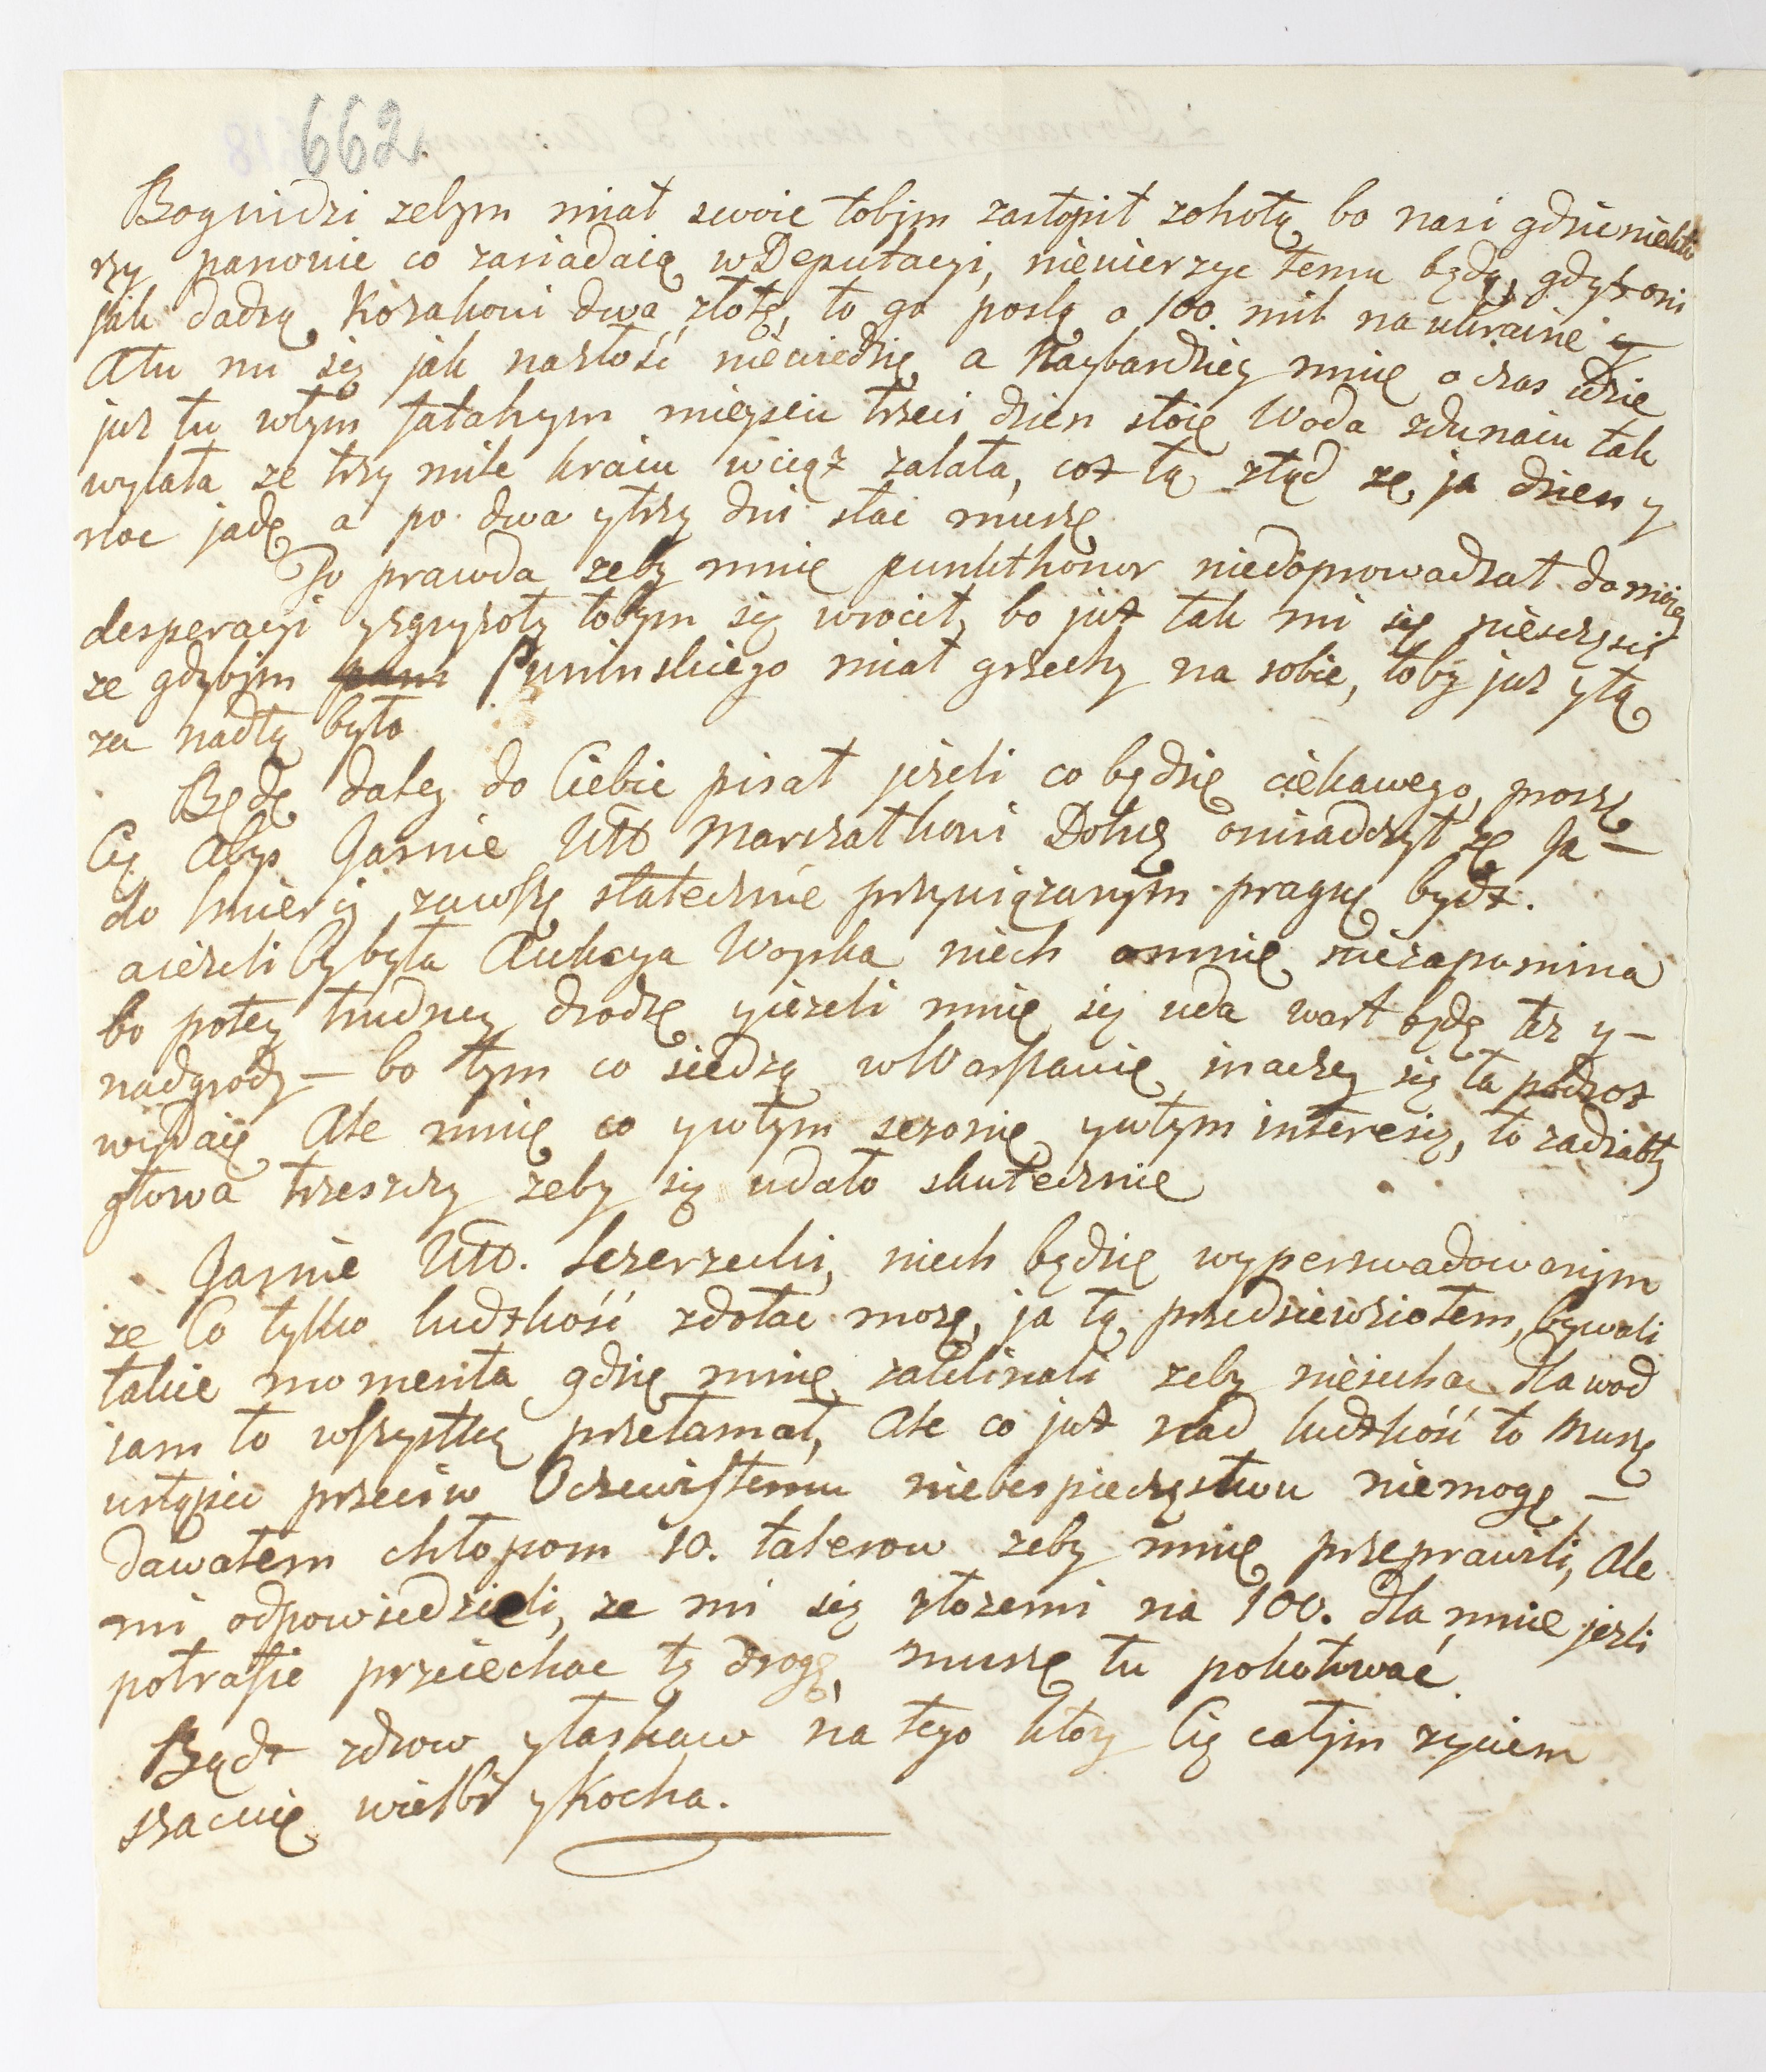 662
Bog widzi zebym miał swoie tobjm zastąpił zohotą bo nasi gdzie niektó
rzy panowie co zasiadaią w Deputacyi, niewierzyc temu będą, gdyż oni
jak dadzą Kozakowi dwa złotę, to go poslą o 100. mil na ukrainę
Atu mi się jak nazłość niewiedzie a Naybardziey mnie o czas idzie
juz tu wtym fatalnym mieyscu trzeci dzien stoię Woda zdunaiu tak
wylała ze trzy mile kraiu wciąż zalała, coż tą ztąd ze ja dzien y
noc jadę a po dwa ytrzy dni stac muszę
To prawda zeby mnie punkthonor niedoprowadzał do moiey
desperacyi yzgryzoty tobym się wrocił, bo już tak mi się nieszczęsci
ze gdybjm Puninskiego miał grzechy na sobie, toby juz ytą
za nadtą było
Będę daley do Ciebie pisał jeżeli co będzie ciekawego, proszę
Cię Abyś Jasnie Wo Marszałkowi Dołię oswiadczył ze Ja —
do smierci zawszę statecznie przywiązanym pragnę bydz.
aieżeli by była Aukcya Woyska niech omnie niezapomina
bo potey trudney drodze yieżeli mnie się uda wart będę tez y —
nadgrody — bo tym co siedzą w Warszawie inaczey się ta podroż
wydaie Ale mnie co ywtym sezonie ywtym interesie, to zadiabły
głowa trzeszczy zeby się udało skutecznie
Jasnie Wo. Sczerzecki, niech będzie wyperswadowanym
ze Co tylko ludzkość zdołac może, ja tą przedsiewziołem, bywali
takie momenta gdzie mnie zaklinali zeby niejechac dla wod
jam to wszystkę przełamał, Ale co już nad ludzkość to Muszę
ustąpic przeciw Oczewistemu niebespieczęstwu niemogę —
dawałem chłopom 10. talerow zeby mnie przeprawili, Ale
mi odpowiedzieli, ze mi się złozemi na 100. dla mnie jezli
potrafie przeiechac tę drogę, muszę tu pokutować
Bądz zdrow yłaskaw na tego ktory Cię całym zyciem
szacuię wielbi y Kocha.